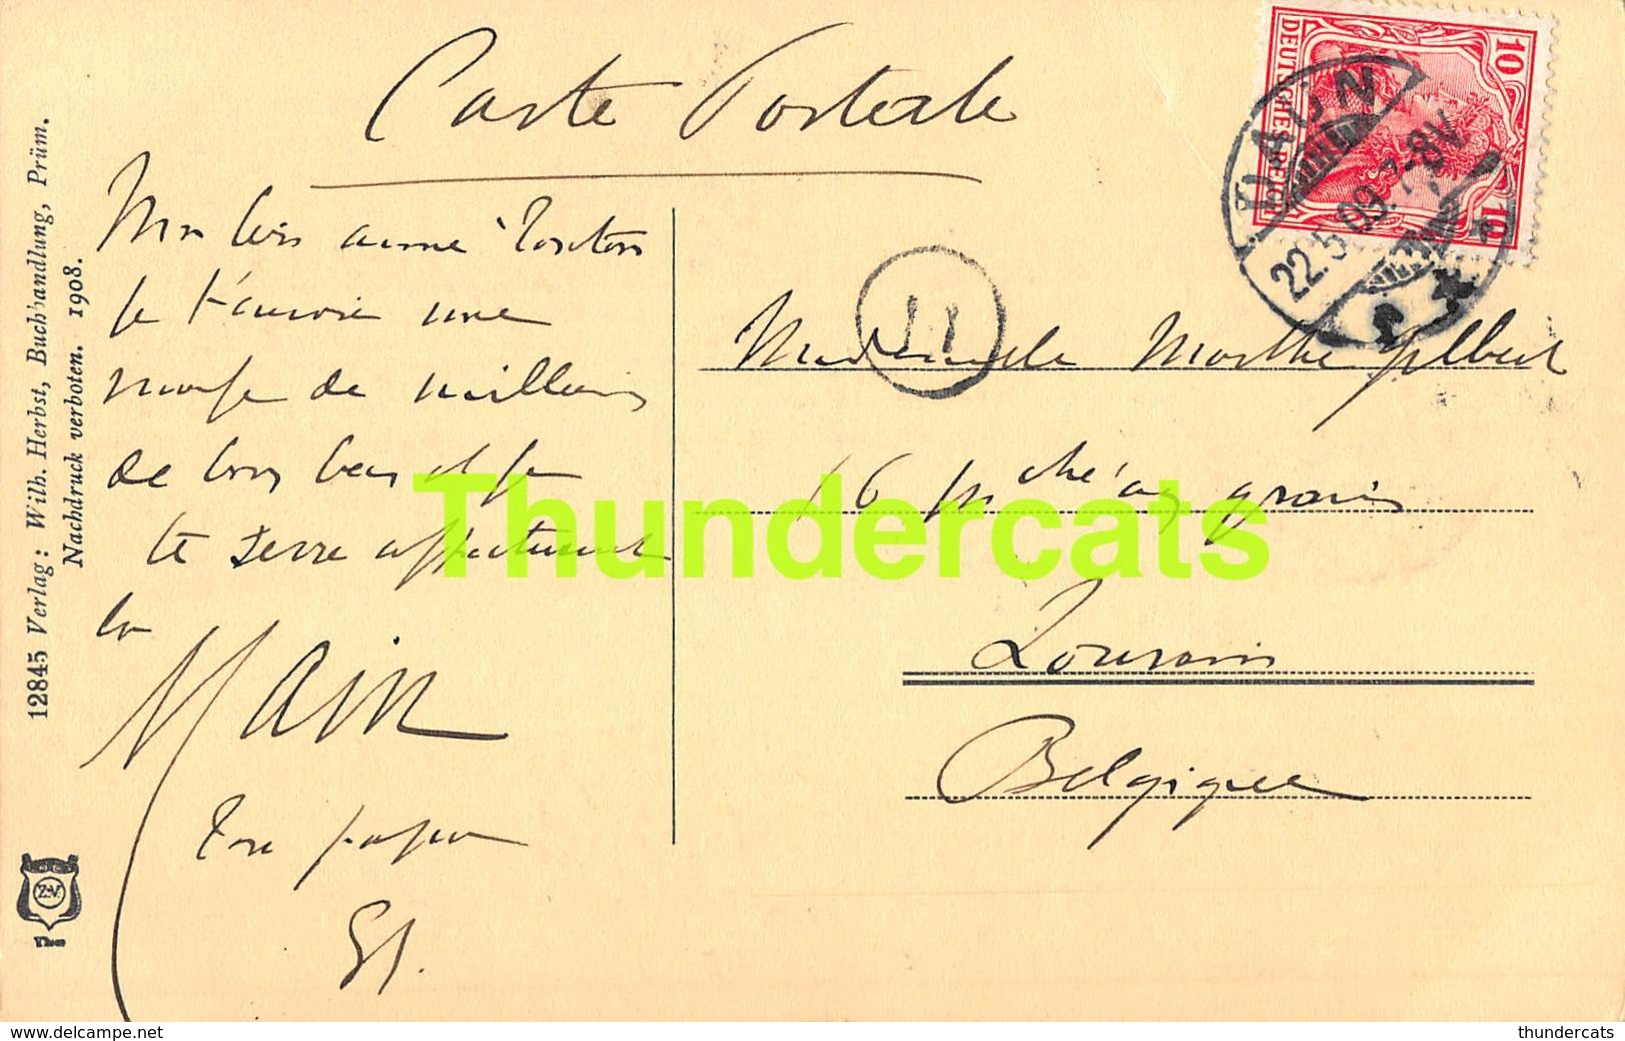 Carte Postale
Mon bien aimé Tonton
Je t'envoie une
masse de milliers
de bons baisers et je
te serre affectueusement
la
Main
Ton papa
12845 Verlag: Wilh. Herbst, Buchhandlung, Prüm.
Nachdruck verboten. 1908.
Z.V.
10 10
DEUTSCHES REICH
DAUN
22.5.09. 7-8V.
Mademoiselle Marthe Gilbert
16
grains
Louvain
Belgique
Thundercats
www.delcampe.net
thundercats